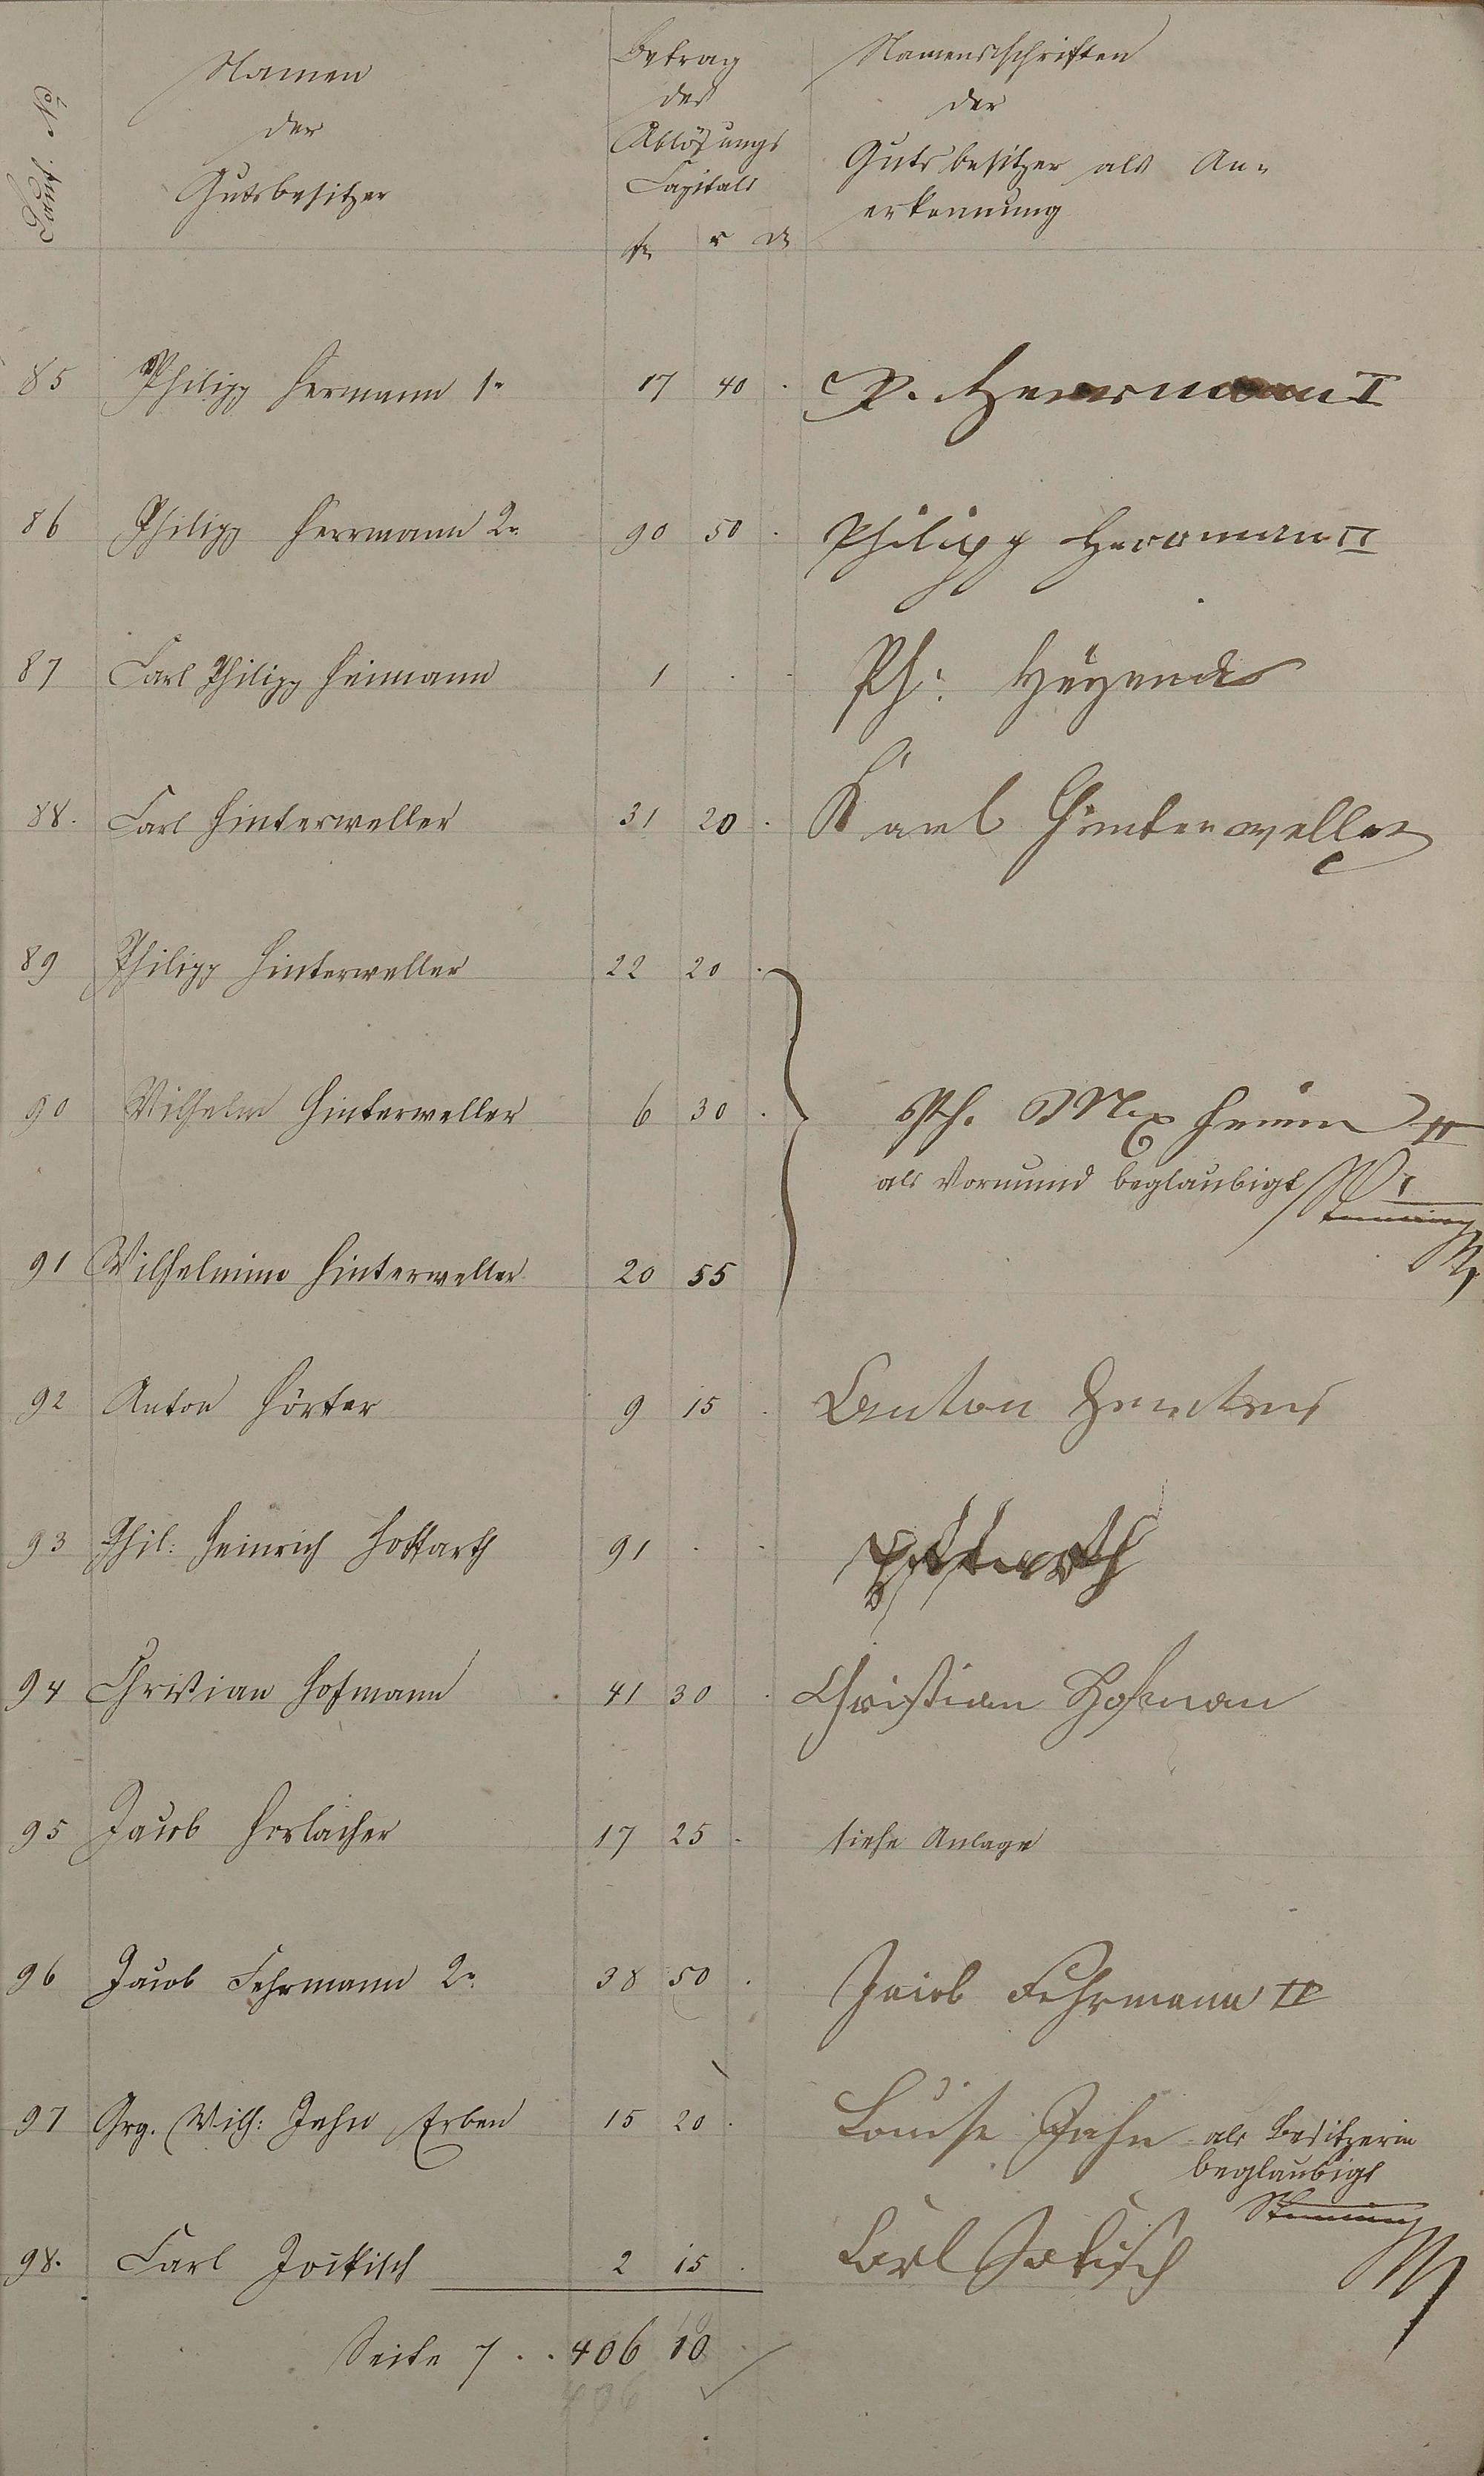 Laufd. No.
Namen
der
Gutsbesitzer
Betrag
des
Ablösungs
Capitals
fr x d
Namensschriften
der
Gutsbesitzer als An-
erkennung
85 Philipp Hermann 1r 17 40 . P. Herrmann I
86 Philipp Herrmann 2r 90 50 . Philipp Herrmann II
87 Carl Philipp Heimann 1 . . Ph:
88. Carl Hinterweller 31 20 . Karl Hinterweller
89 Philipp Hinterweller 22 20 .
90 Wilhelm Hinterweller 6 30 . Ph. II
als Vormund beglaubigt
91 Wilhelmine Hinterweller 20 55
92 Anton Hörter 9 15 . Anton
93 Phil: Heinrich Hottarth 91 . . Hottarth
94 Christian Hofmann 41 30 . Christian Hofman
95 Jacob Horlacher 17 25 . siehe Anlage
96 Jacob Fehrmann 2r 38 50 . Jacob Fehrmann II
97 Grg. Wilh: Jahn Erben 15 20 . Louise Jahn als Besitzerin
beglaubigt
98. Carl Jockisch 2 15 . Carl Jokisch
Seite 7 . . 406 10
406